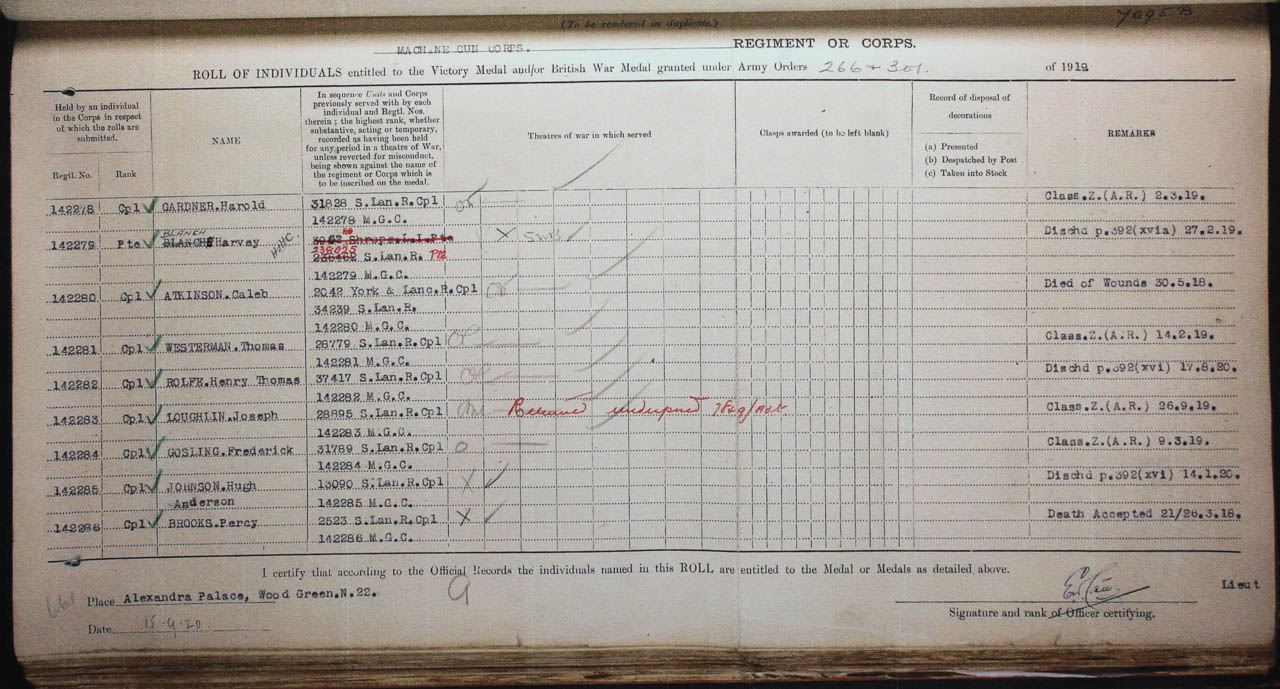 (To be rendered in duplicate.)
MACHINE GUN CORPS. REGIMENT OR CORPS.
ROLL OF INDIVIDUALS entitled to the Victory Medal and/or British War Medal granted under Army Orders 266 & 301. of 1919
Held by an individual in the Corps in respect of which the rolls are submitted.
Regtl. No. Rank
NAME
In sequence Units and Corps previously served with by each individual and Regtl. Nos. therein; the highest rank, whether substantive, acting or temporary, recorded as having been held for any period in a theatre of War, unless reverted for misconduct, being shown against the name of the regiment or Corps which is to be inscribed on the medal.
Theatres of war in which served
Clasps awarded (to be left blank)
Record of disposal of decorations
(a) Presented
(b) Despatched by Post
(c) Taken into Stock
REMARKS
142278 Cpl GARDNER.Harold 31828 S.Lan.R.Cpl Class.Z.(A.R.) 2.3.19.
142278 M.G.C.
142279 Pte BLANCH Harvey Shrops.L.I.Pte X Dischd p.392(xvia) 27.2.19.
238025
S.Lan.R. Pte
142279 M.G.C.
142280 Cpl ATKINSON.Caleb 2042 York & Lanc.R.Cpl Died of Wounds 30.5.18.
34239 S.Lan.R.
142280 M.G.C.
142281 Cpl WESTERMAN.Thomas 28779 S.Lan.R.Cpl Class.Z.(A.R.) 14.2.19.
142281 M.G.C.
142282 Cpl ROLFE.Henry Thomas 37417 S.Lan.R.Cpl Dischd p.392(xvi) 17.8.20.
142282 M.G.C.
142283 Cpl LOUGHLIN.Joseph 28895 S.Lan.R.Cpl Class.Z.(A.R.) 26.9.19.
142283 M.G.C.
142284 Cpl GOSLING.Frederick 31789 S.Lan.R.Cpl Class.Z.(A.R.) 9.3.19.
142284 M.G.C.
142285 Cpl JOHNSON.Hugh 13090 S.Lan.R.Cpl X Dischd p.392(xvi) 14.1.20.
Anderson 142285 M.G.C.
142286 Cpl BROOKS.Percy 2523 S.Lan.R.Cpl X Death Accepted 21/26.3.18.
142286 M.G.C.
I certify that according to the Official Records the individuals named in this ROLL are entitled to the Medal or Medals as detailed above.
Place Alexandra Palace, Wood Green.N.22. 9 Lieut
Signature and rank of Officer certifying.
Date 15.9.20.